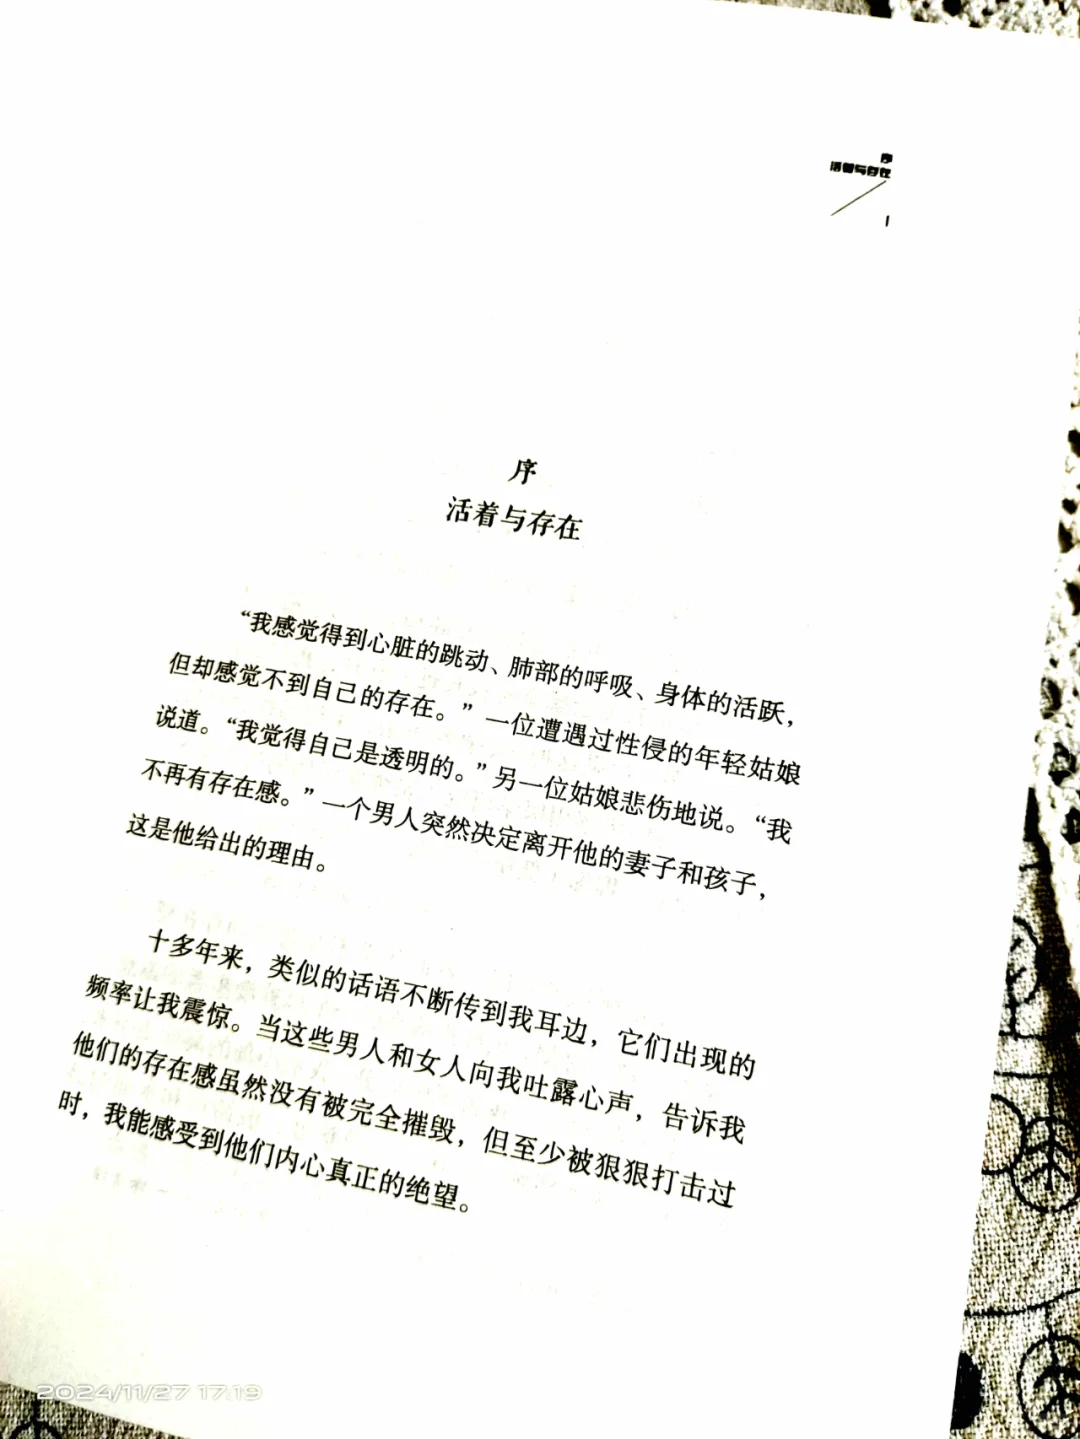 序
活着与存在
1
序
活着与存在
“我感觉得到心脏的跳动、肺部的呼吸、身体的活跃，
但却感觉不到自己的存在。”一位遭遇过性侵的年轻姑娘
说道。“我觉得自己是透明的。”另一位姑娘悲伤地说。“我
不再有存在感。”一个男人突然决定离开他的妻子和孩子，
这是他给出的理由。
十多年来，类似的话语不断传到我耳边，它们出现的
频率让我震惊。当这些男人和女人向我吐露心声，告诉我
他们的存在感虽然没有被完全摧毁，但至少被狠狠打击过
时，我能感受到他们内心真正的绝望。
2024/11/27 17:19